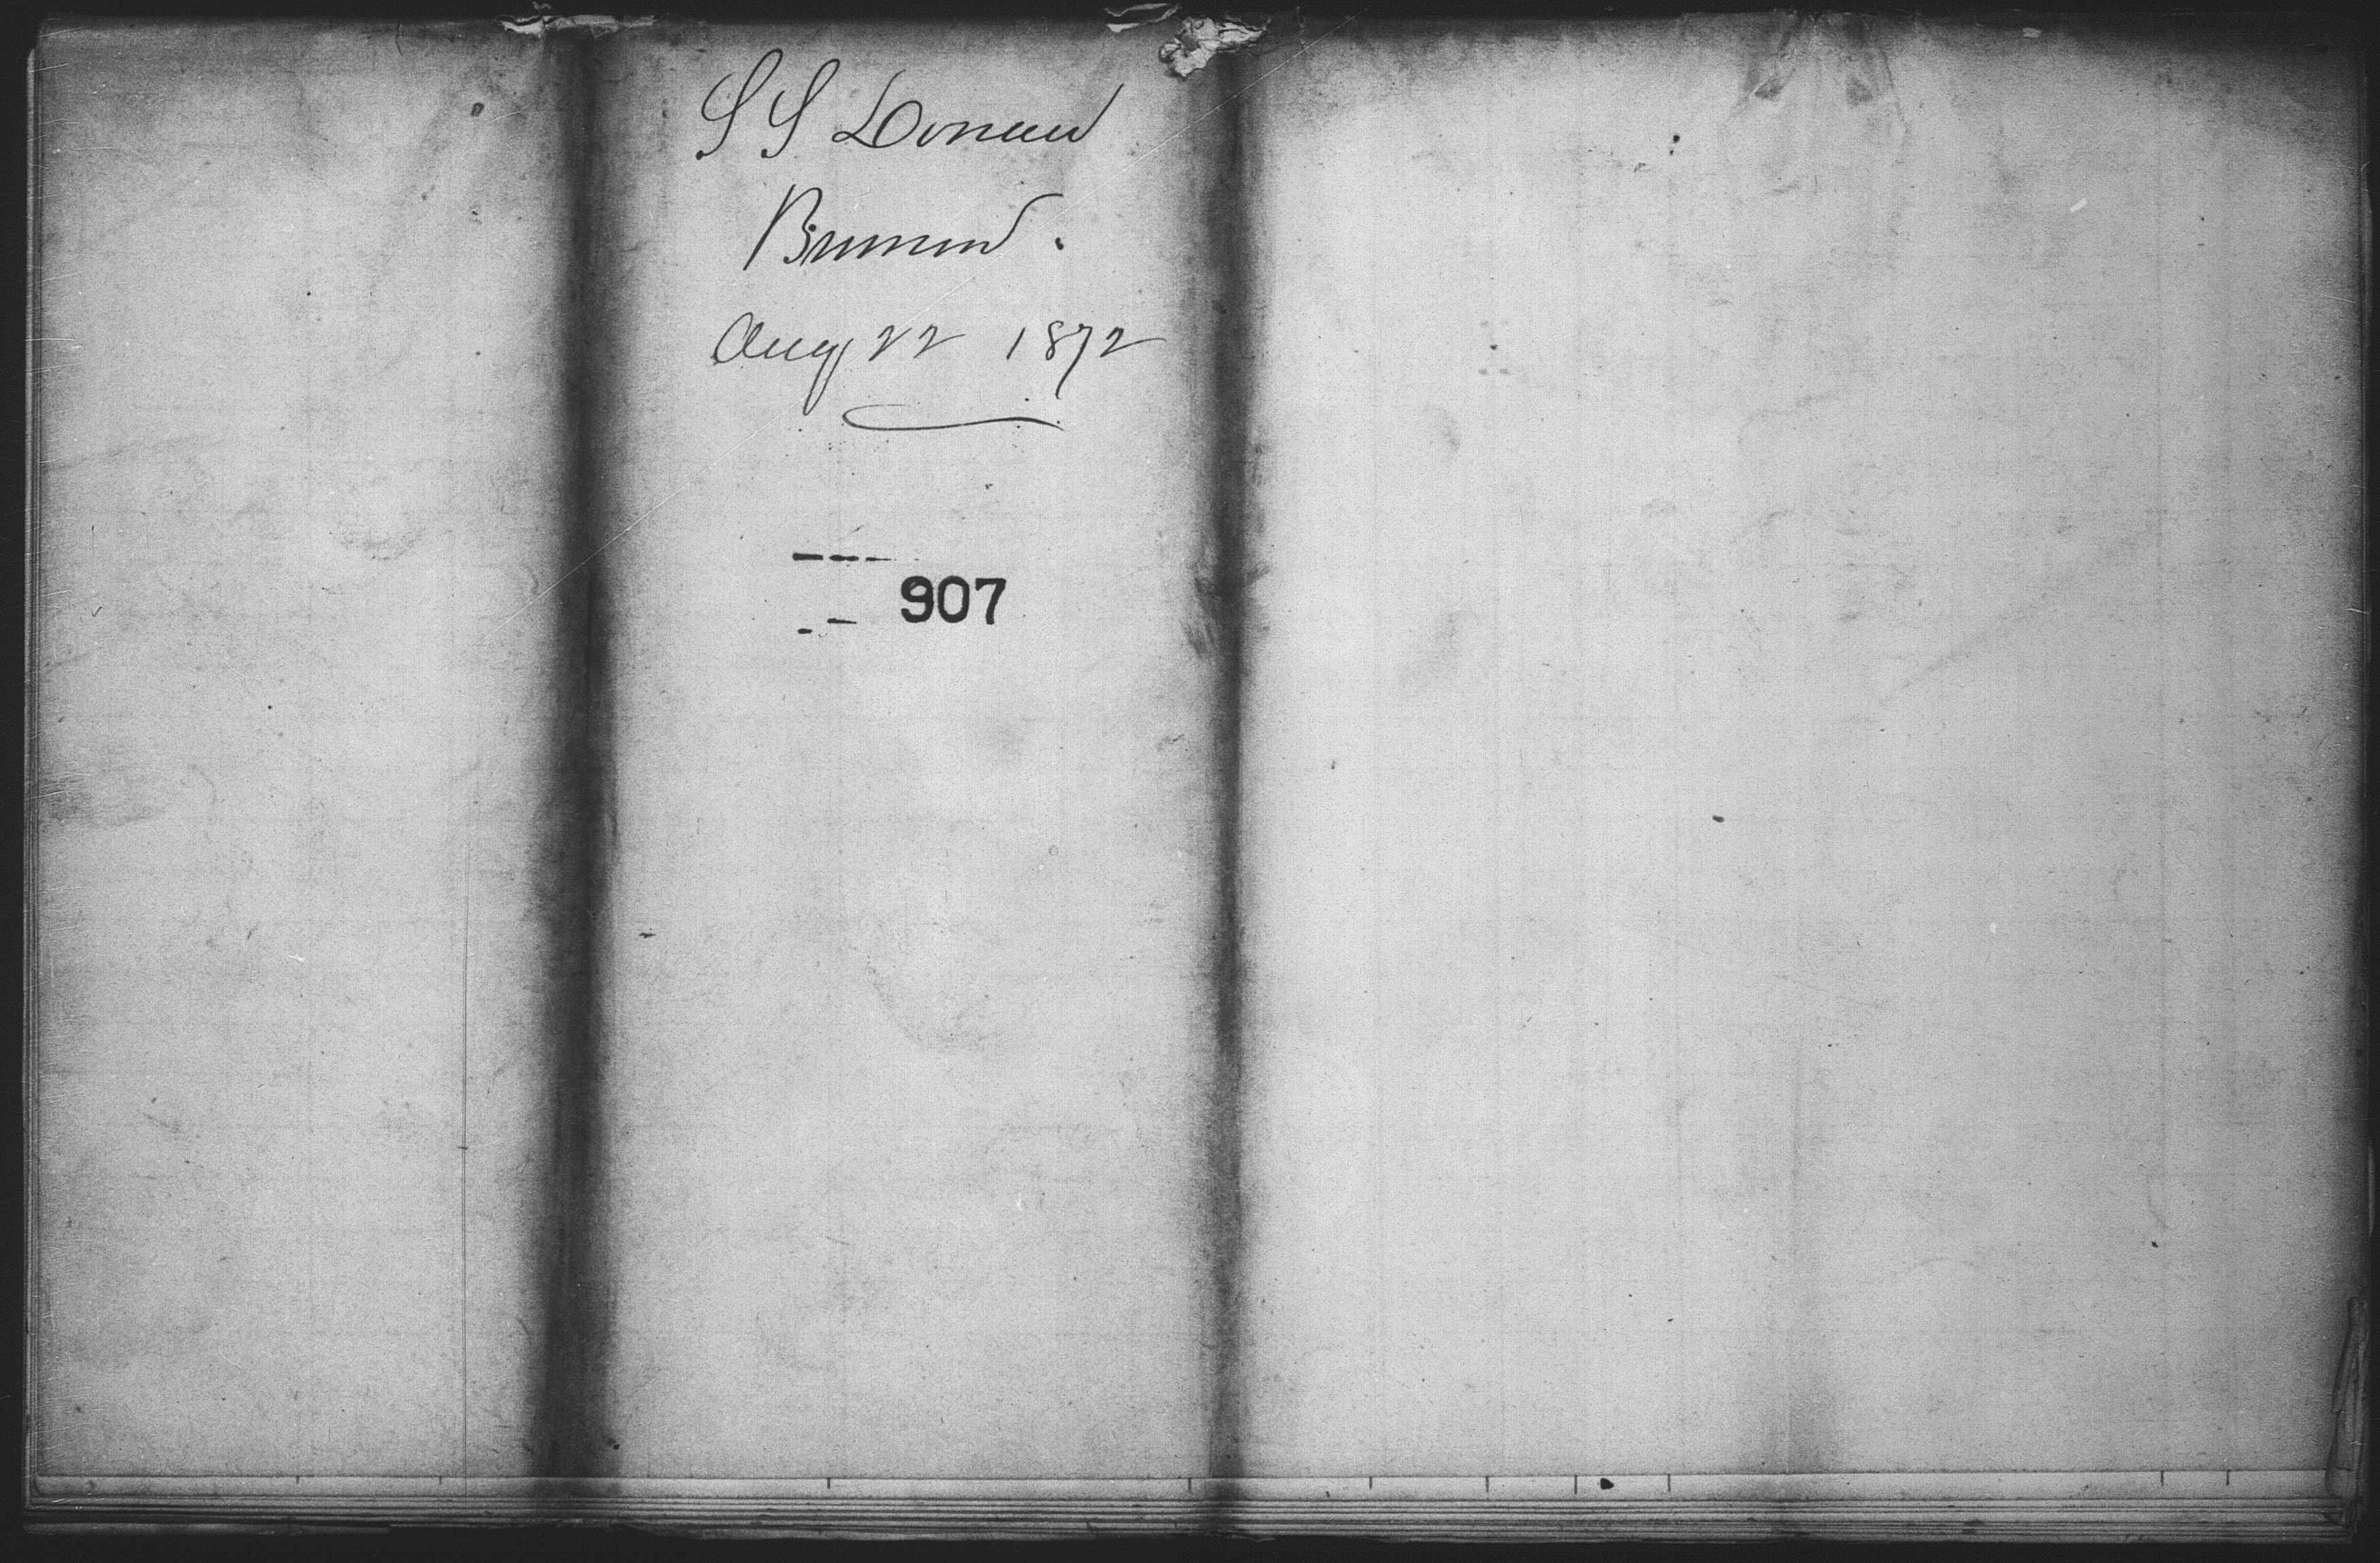 S S Donau
Bremen.
Aug 22 1872
907